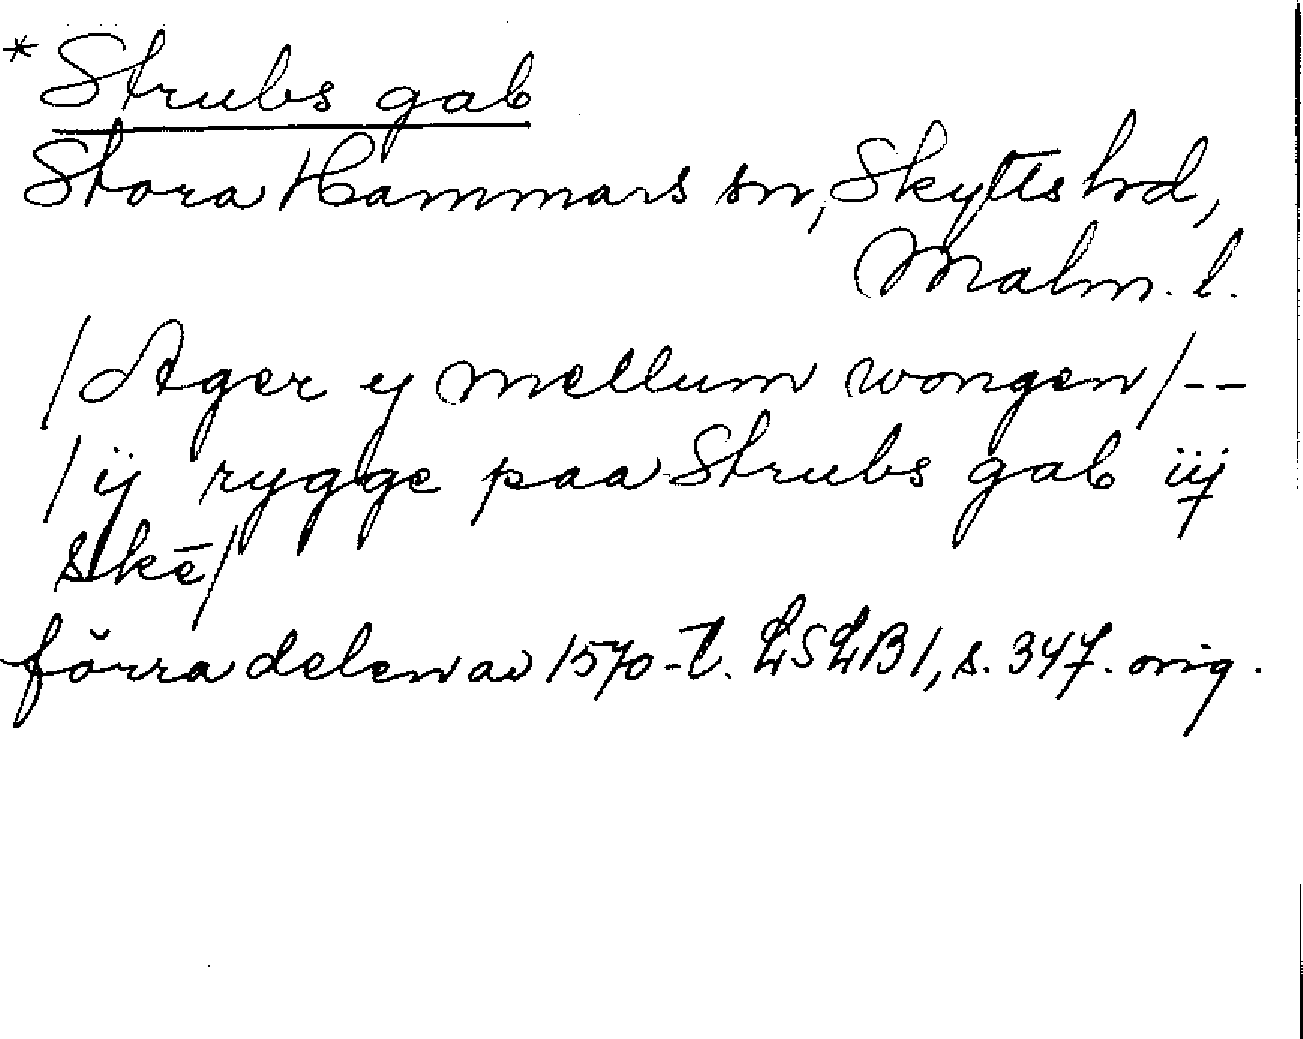 * Strubs gab
Stora Hammars sn, Skytts hd,
Malm. l.
/Ager y mellum wongen/--
/ij rygge paa Strubs gab iij
skē/
förra delen av 1570-t. LSLB1, s. 347. orig.